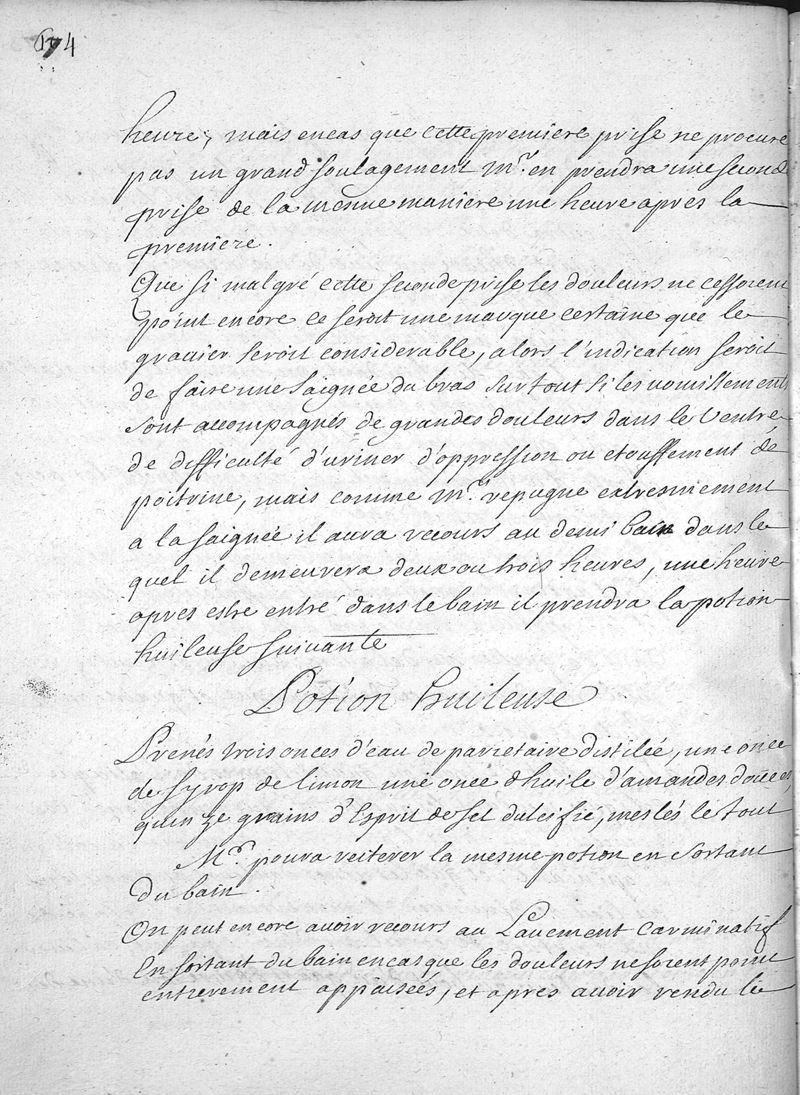 174
heure, mais encas que cette premiere prise ne procure
pas un grand soulagement Mr. en prendra une seconde
prise de la mesme maniere une heure apres la
premiere.
Que si malgré cette seconde prise les douleurs ne cessoient
point encore ce seroit une marque certaine que le
grauier seroit considerable, alors l'indication seroit
de faire une saignée du bras sur tout si les uomissements
sont accompagnés de grandes douleurs dans le ventre
de difficulté d'uriner d'oppression ou etouffement de
poitrine, mais comme Mr. repugne extresmement
a la saignée il aura recours au demi bain dans le
quel il demeurera deux ou trois heures, une heure
apres estre entré dans le bain il prendra la potion
huileuse suivante
Potion huileuse
Prenés trois onces d'eau de parietaire distilée, une once
de syrop de limon une once d'huile d'amandes douces,
quinze grains d'Esprit de sel dulcifié, meslés le tout
Mr. poura reiterer la mesme potion en sortant
Du bain.
On peut encore avoir recours au Lauement carminatif
En sortant du bain encas que les douleurs ne soient point
entierement appaisées, et apres auoir rendu le